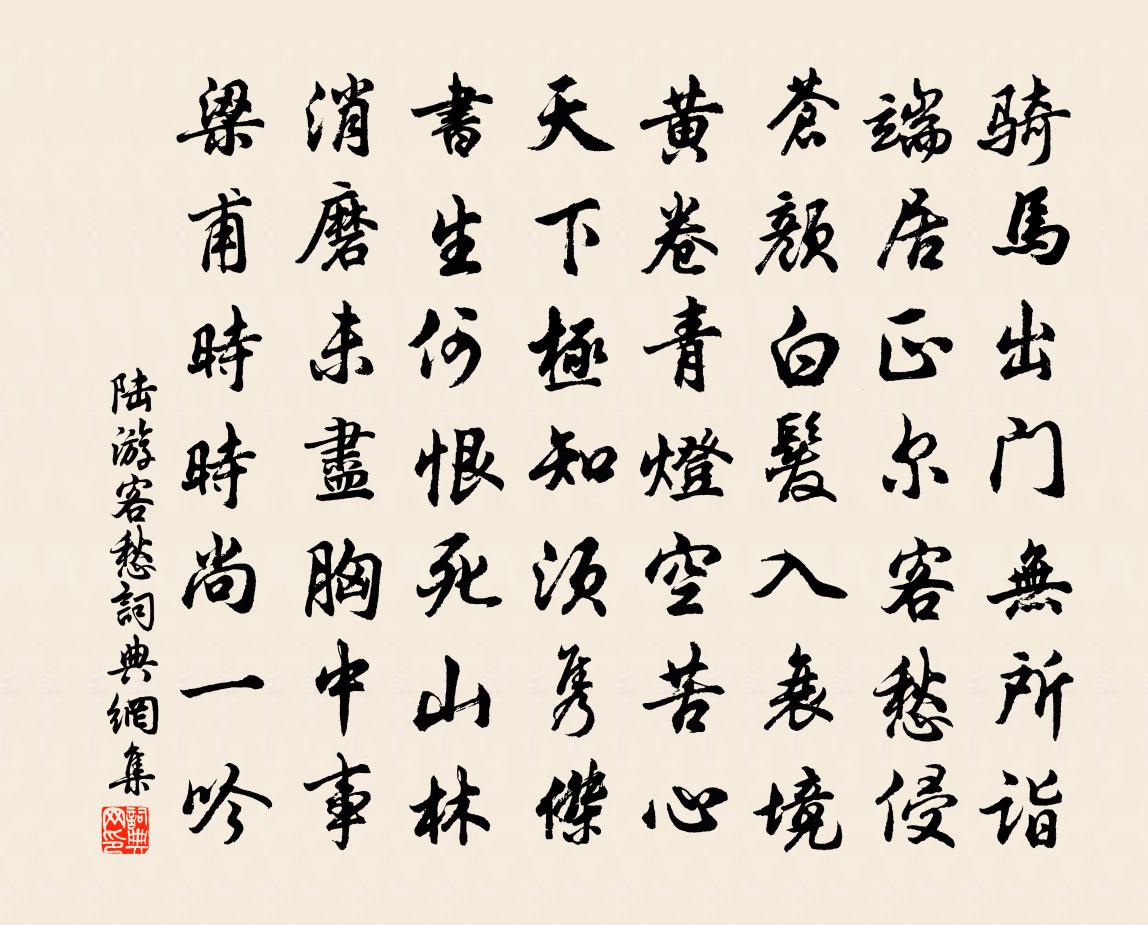 骑馬出门無所诣
端居正尔客愁侵
蒼顏白髮入衰境
黄卷青燈空苦心
天下極知須隽傑
書生何恨死山林
消磨未盡胸中事
梁甫時時尚一吟
陆游客愁詞典網集
詞典网印